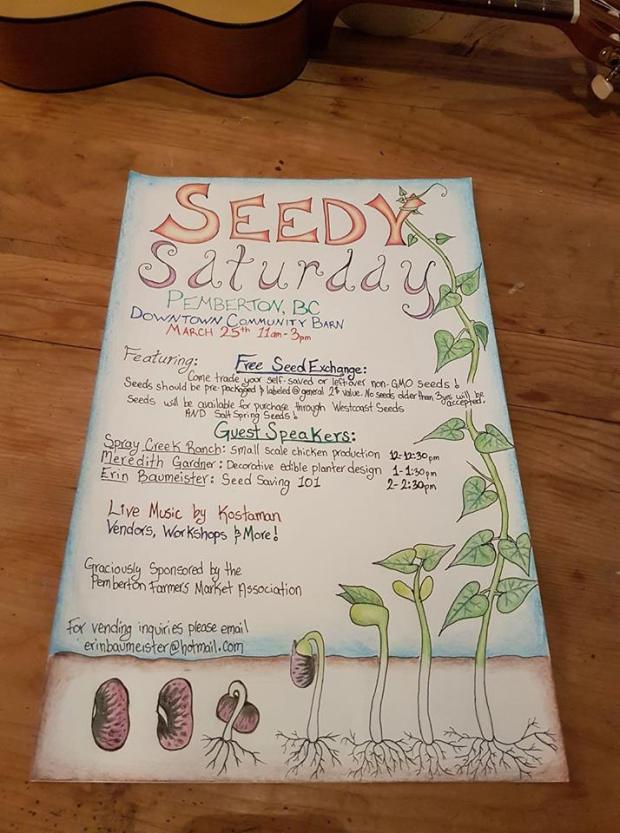 SEEDY
Saturday
PEMBERTON, BC
DOWNTOWN COMMUNITY BARN
MARCH 25th 11am-3pm
Featuring: Free Seed Exchange:
Come trade your self-saved or leftover non-GMO seeds!
Seeds should be pre-packaged & labeled @ general 2$ value. No seeds older than 3yrs will be accepted.
Seeds will be available for purchase through Westcoast Seeds
AND Salt Spring Seeds!
Guest Speakers:
Spray Creek Ranch: Small scale chicken production 12-12:30pm
Meredith Gardner: Decorative edible planter design 1-1:30pm
Erin Baumeister: Seed Saving 101 2-2:30pm
Live Music by Kostaman
Vendors, Workshops & More!
Graciously Sponsored by the
Pemberton Farmers Market Association
For vending inquiries please email
erinbaumeister@hotmail.com